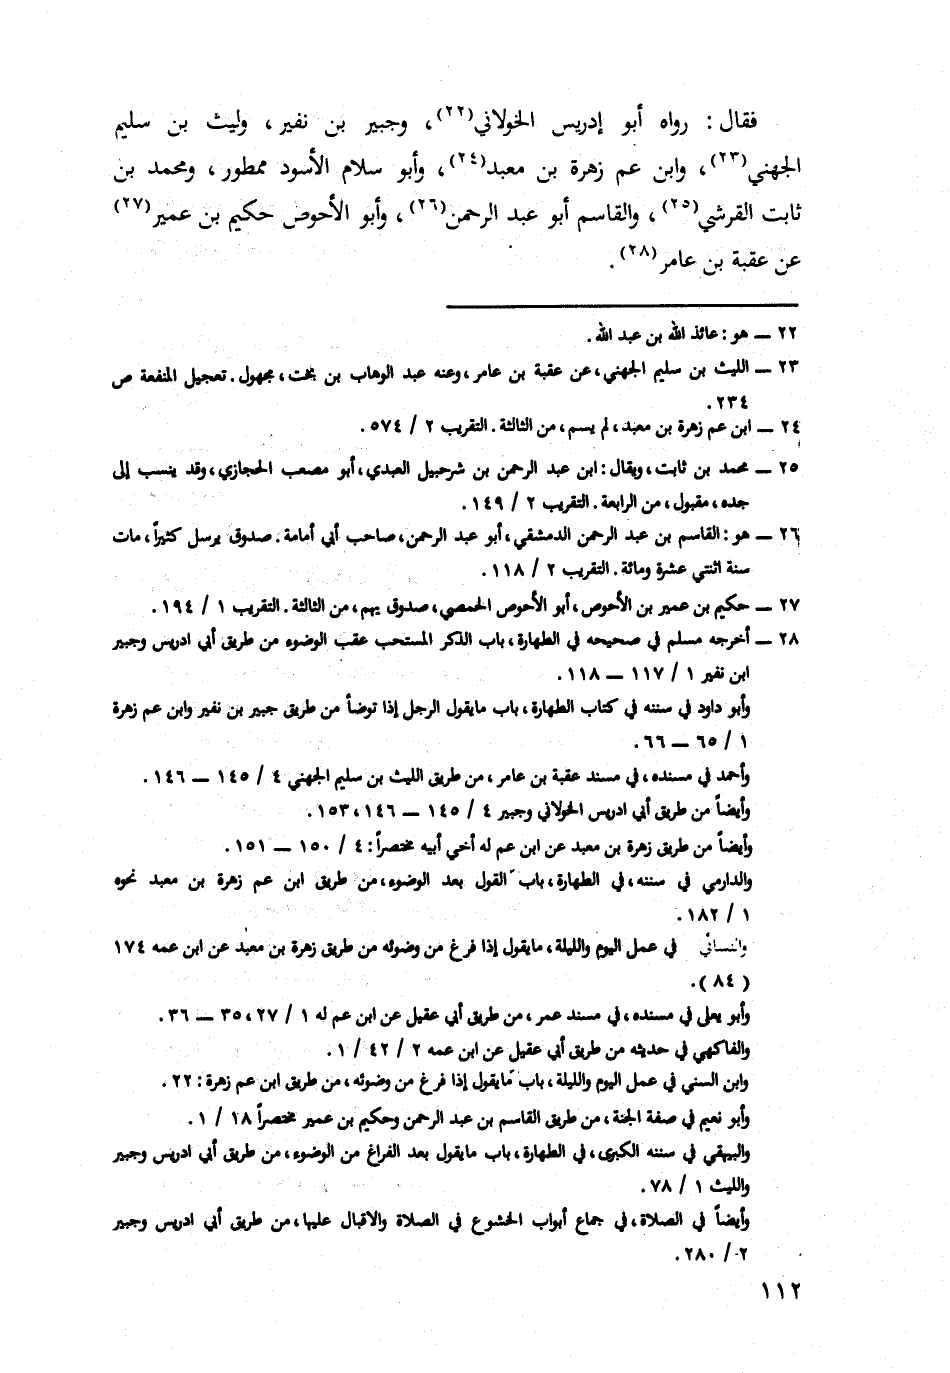 فقال : رواه أبو إدريس الخولاني(٢٢)، وجبير بن نفير ، وليث بن سليم
الجهني(٢٣)، وابن عم زهرة بن معبد(٢٤)، وأبو سلام الأسود ممطور ، ومحمد بن
ثابت القرشي(٢٥)، والقاسم أبو عبد الرحمن(٢٦)، وأبو الأحوص حكيم بن عمير(٢٧)
عن عقبة بن عامر(٢٨).
٢٢ ــ هو : عائذ الله بن عبد الله.
٢٣ ــ الليث بن سليم الجهني، عن عقبة بن عامر، وعنه عبد الوهاب بن بخت، مجهول. تعجيل المنفعة ص
٢٣٤.
٢٤ ــ ابن عم زهرة بن معبد، لم يسم، من الثالثة. التقريب ٢ / ٥٧٤.
٢٥ ــ محمد بن ثابت، ويقال: ابن عبد الرحمن بن شرحبيل العبدي، أبو مصعب الحجازي، وقد ينسب إلى
جده، مقبول، من الرابعة. التقريب ٢ / ١٤٩.
٢٦ ــ هو: القاسم بن عبد الرحمن الدمشقي، أبو عبد الرحمن، صاحب أبي أمامة. صدوق يرسل كثيراً، مات
سنة اثنتي عشرة ومائة. التقريب ٢ / ١١٨.
٢٧ ــ حكيم بن عمير بن الأحوص، أبو الأحوص الحمصي، صدوق يهم، من الثالثة. التقريب ١ / ١٩٤.
٢٨ ــ أخرجه مسلم في صحيحه في الطهارة، باب الذكر المستحب عقب الوضوء من طريق أبي ادريس وجبير
ابن نفير ١ / ١١٧ ــ ١١٨.
وأبو داود في سننه في كتاب الطهارة، باب مايقول الرجل إذا توضأ من طريق جبير بن نفير وابن عم زهرة
١ / ٦٥ ــ ٦٦.
وأحمد في مسنده، في مسند عقبة بن عامر، من طريق الليث بن سليم الجهني ٤ / ١٤٥ ــ ١٤٦.
وأيضاً من طريق أبي ادريس الخولاني وجبير ٤ / ١٤٥ ــ ١٤٦، ١٥٣.
وأيضاً من طريق زهرة بن معبد عن ابن عم له أخي أبيه مختصراً: ٤ / ١٥٠ ــ ١٥١.
والدارمي في سننه، في الطهارة، باب القول بعد الوضوء، من طريق ابن عم زهرة بن معبد نحوه
١ / ١٨٢.
والنسائي في عمل اليوم والليلة، مايقول إذا فرغ من وضوئه من طريق زهرة بن معبد عن ابن عمه ١٧٤
( ٨٤ ).
وأبو يعلى في مسنده، في مسند عمر، من طريق أبي عقيل عن ابن عم له ١ / ٢٧، ٣٥ ــ ٣٦.
والفاكهي في حديثه من طريق أبي عقيل عن ابن عمه ٢ / ٤٢ / ١.
وابن السني في عمل اليوم والليلة، باب مايقول إذا فرغ من وضوئه، من طريق ابن عم زهرة: ٢٢.
وأبو نعيم في صفة الجنة، من طريق القاسم بن عبد الرحمن وحكيم بن عمير مختصراً ١٨ / ١.
والبيهقي في سننه الكبرى، في الطهارة، باب مايقول بعد الفراغ من الوضوء، من طريق أبي ادريس وجبير
والليث ١ / ٧٨.
وأيضاً في الصلاة، في جماع أبواب الخشوع في الصلاة والاقبال عليها، من طريق أبي ادريس وجبير
٢ / ٢٨٠.
١١٢